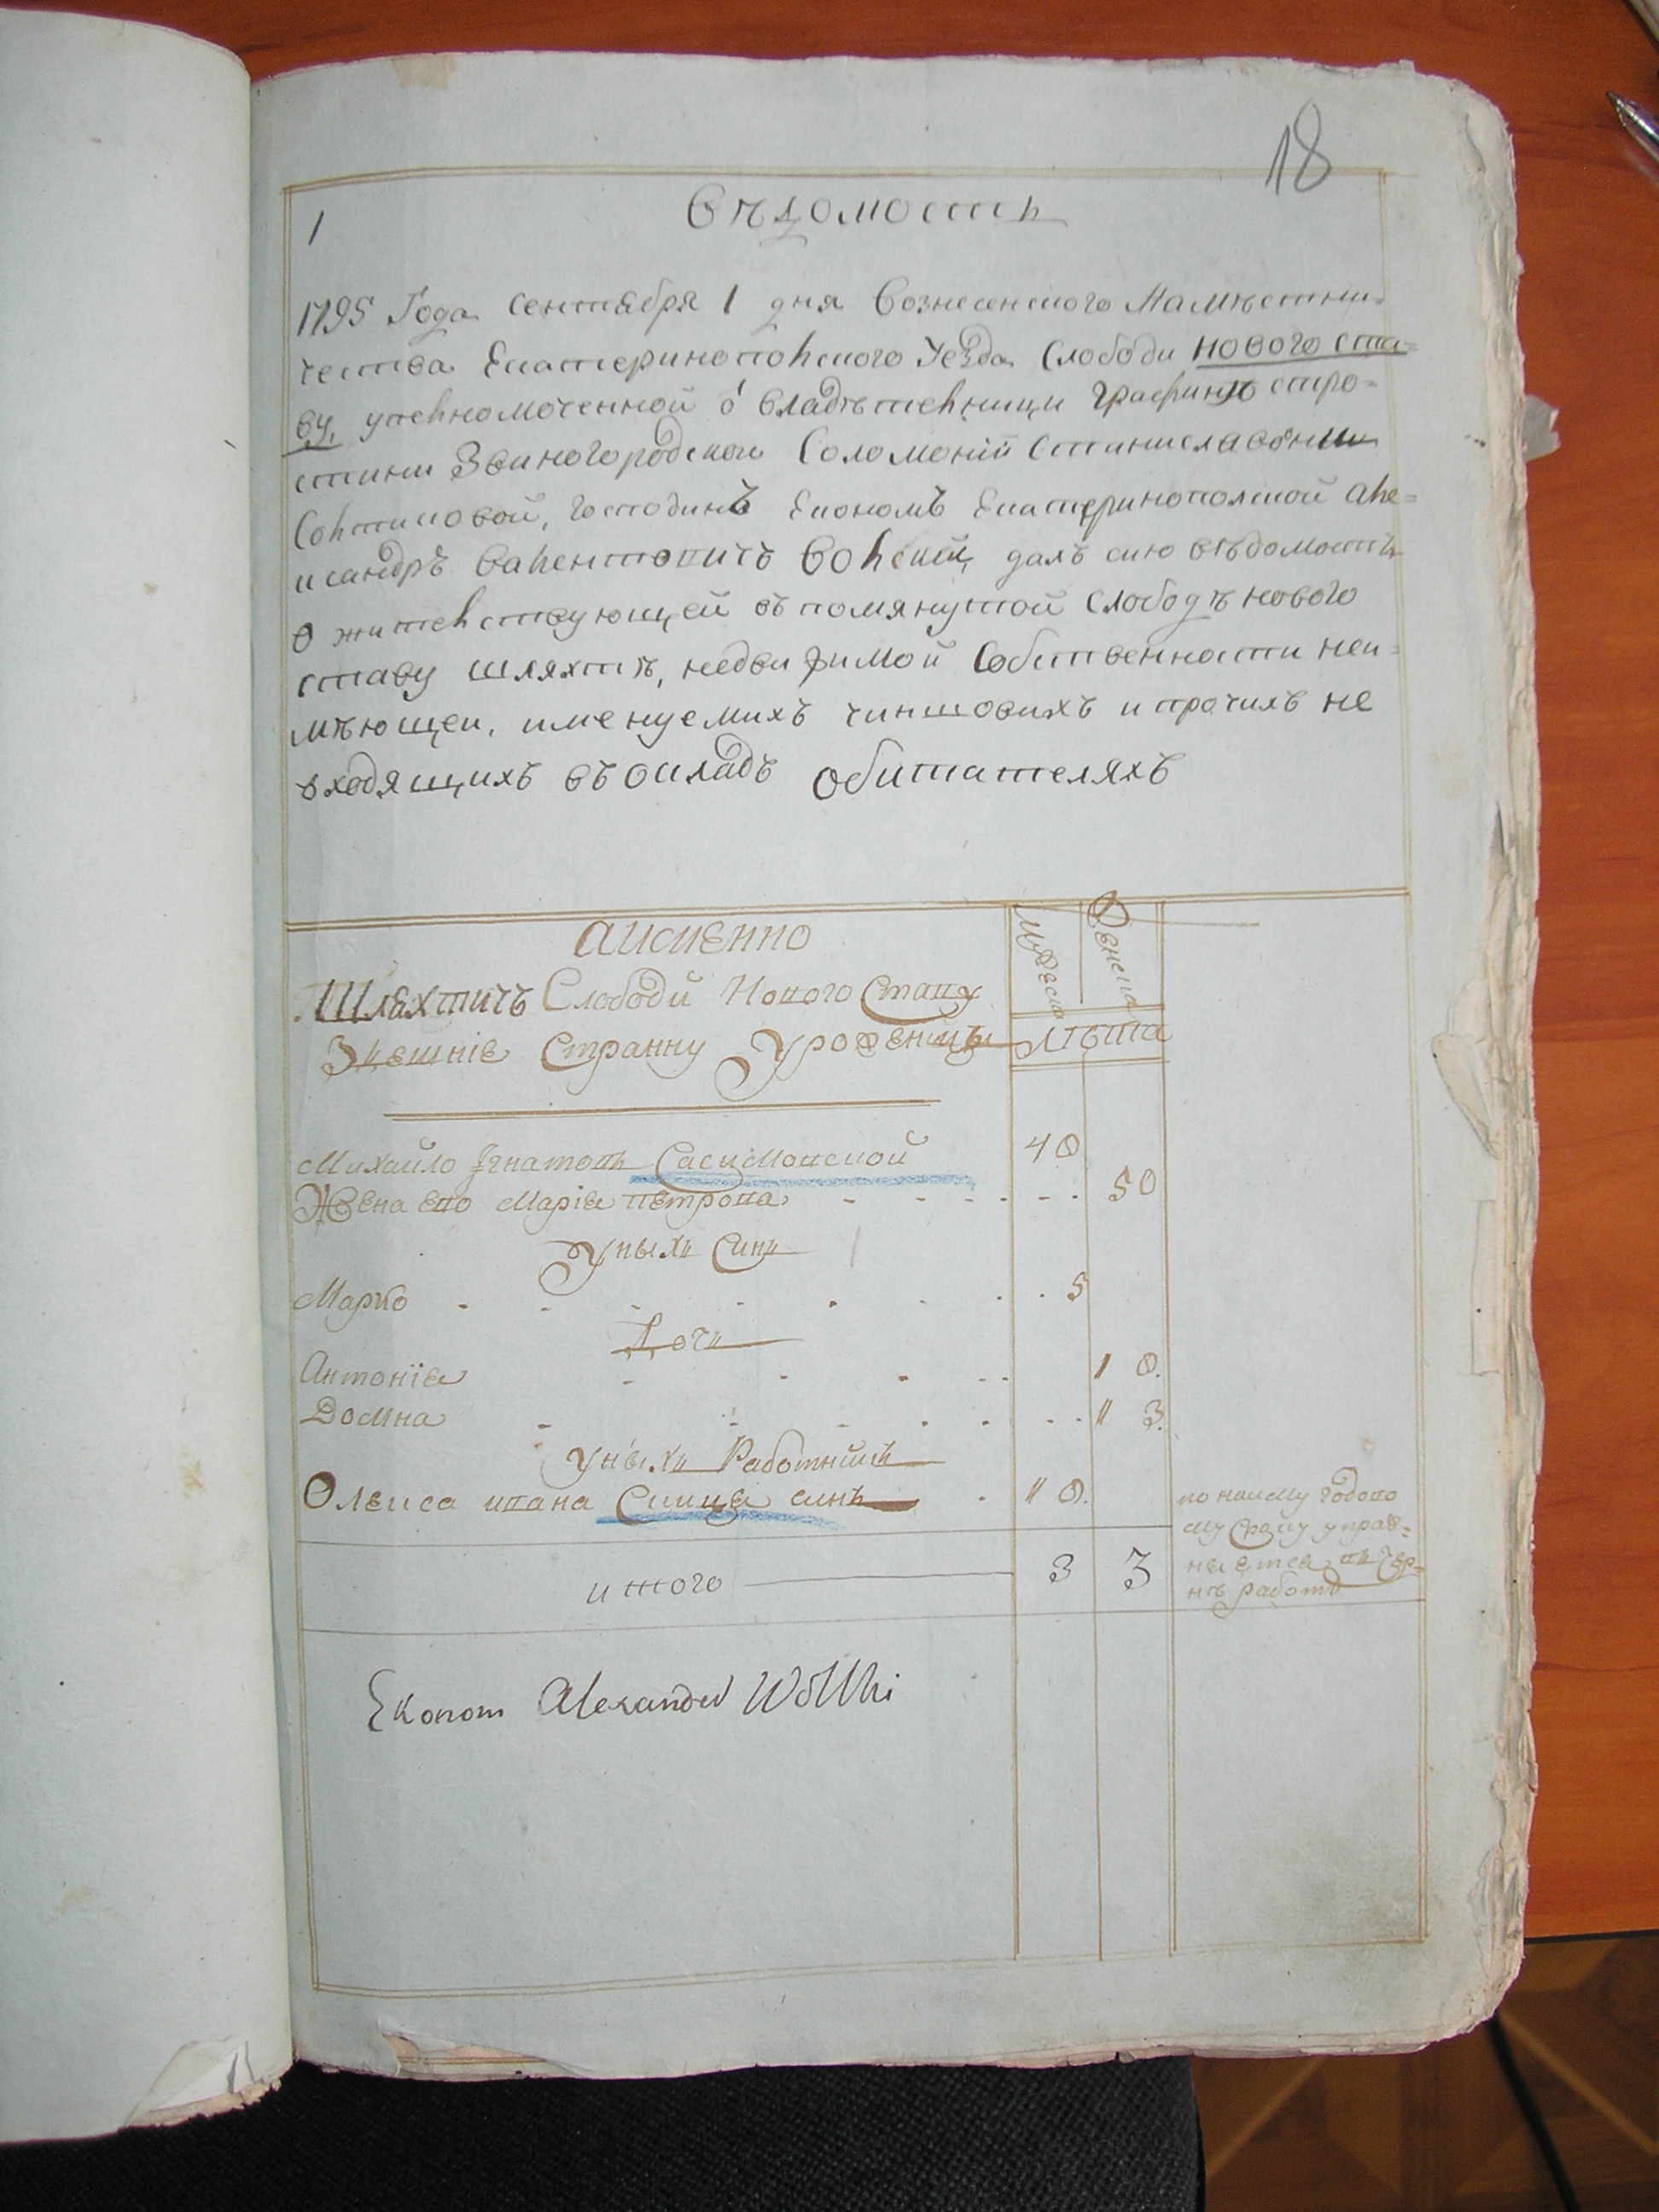 18
1
Вѣдомость
1795 Года Сентября 1 дня Вознесенского Намѣстни=
чества Екатеринопольского Уезда Слободи Нового Ста=
ву, уполномоченной о владѣтельници Графинѣ стро=
стини Звиногородской Соломонїй Станиславовни
Солтиковой, Господинъ Економъ Екатеринополской Але=
ксандръ Валентовичъ Волский, далъ сию вѣдомость
О жительствующей въ помянутой Слободѣ нового
ставу шляхтѣ, недвижимой Собственности неи=
мѣющей, именуемихъ чиншовихъ и прочихъ не
входящихъ въ окладъ обитателяхъ
Аименно
Мужеска
Женска
Шляхтичъ Слободи Нового Ставу
Здешнїе Странну Уроженци
Лѣта
Михайло Игнатовъ Сасимовской 40
Жена его Марїя петрова 50
У ныхъ Синъ
Марко 5
Дочи
Антонїя 10.
Домна 3.
У ныхъ Работникъ
Олекса ивана Сидця синъ 10.
по найму годово
му Сроку упраж=
няется въ Чер=
нѣ работѣ
итого 3 3
Ekonom Alexander Wolski